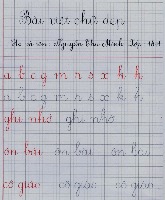 Bài viết chữ đẹp
Họ và tên: Nguyễn Thu Minh Lớp: 1A1
a b c g m r s x k h
a b c g m r s x k h
ghi nhớ ghi nhớ
ôn bài ôn bài ôn bài
cô giáo cô giáo cô giáo